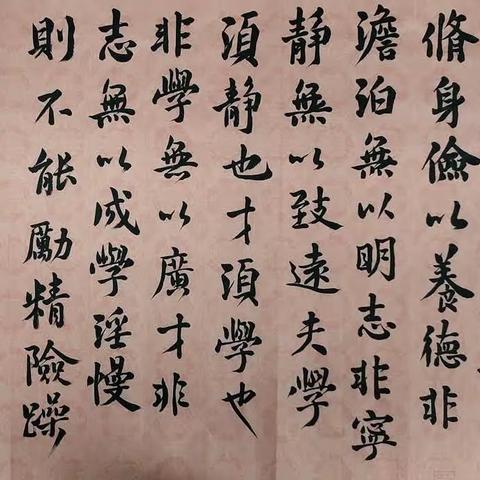 脩身儉以養德非
澹泊無以明志非寧
靜無以致遠夫學
須靜也才須學也
非學無以廣才非
志無以成學淫慢
則不能勵精險躁